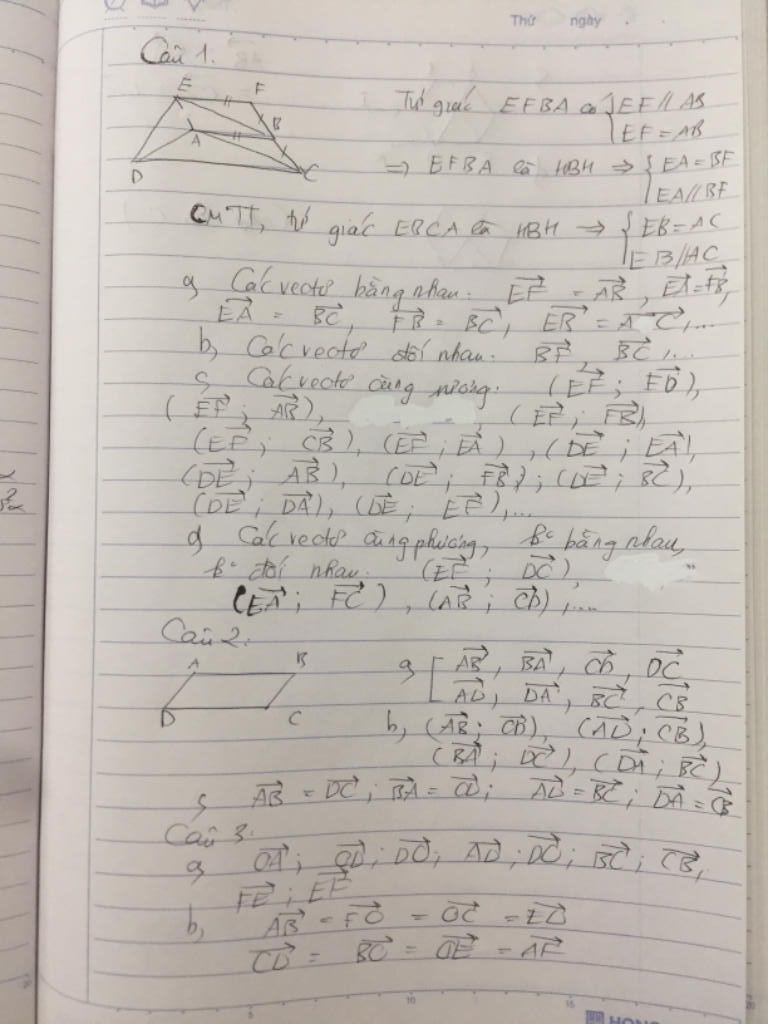 Thứ ngày
Câu 1.
E F A B D C
Tứ giác EFBA có { EF // AB
EF = AB
=> EFBA là HBH => { EA = BF
EA // BF
CMTT, tứ giác EBCA là HBH => { EB = AC
EB // AC
a, Các vectơ bằng nhau: EF→ = AB→, EA→ = FB→,
EA→ = BC→, FB→ = BC→, EB→ = AC→,...
b, Các vectơ đối nhau: BF→, BC→,...
c, Các vectơ cùng hướng: (EF→; FD→),
(EF→; AB→), (EF→; FB→),
(EF→; CB→), (EF→; EA→), (DE→; EA→),
(DE→; AB→), (DE→; FB→); (DE→; BC→),
(DE→; DA→), (DE→; EF→),...
d, Các vectơ cùng phương, k° bằng nhau,
k° đối nhau: (EF→; DC→),
(EA→; FC→), (AB→; CD→),....
Câu 2.
A B D C
a, [ AB→, BA→, CD→, DC→
AD→, DA→, BC→, CB→
b, (AB→; CD→), (AD→; CB→),
(BA→; DC→), (DA→; BC→)
c, AB→ = DC→; BA→ = CD→; AD→ = BC→; DA→ = CB→
Câu 3.
a, OA→; OD→; DO→; AD→; DO→; BC→; CB→,
FE→; EF→
b, AB→ = FO→ = OC→ = ED→
CD→ = BO→ = OE→ = AF→
5 10 15 20
HONG